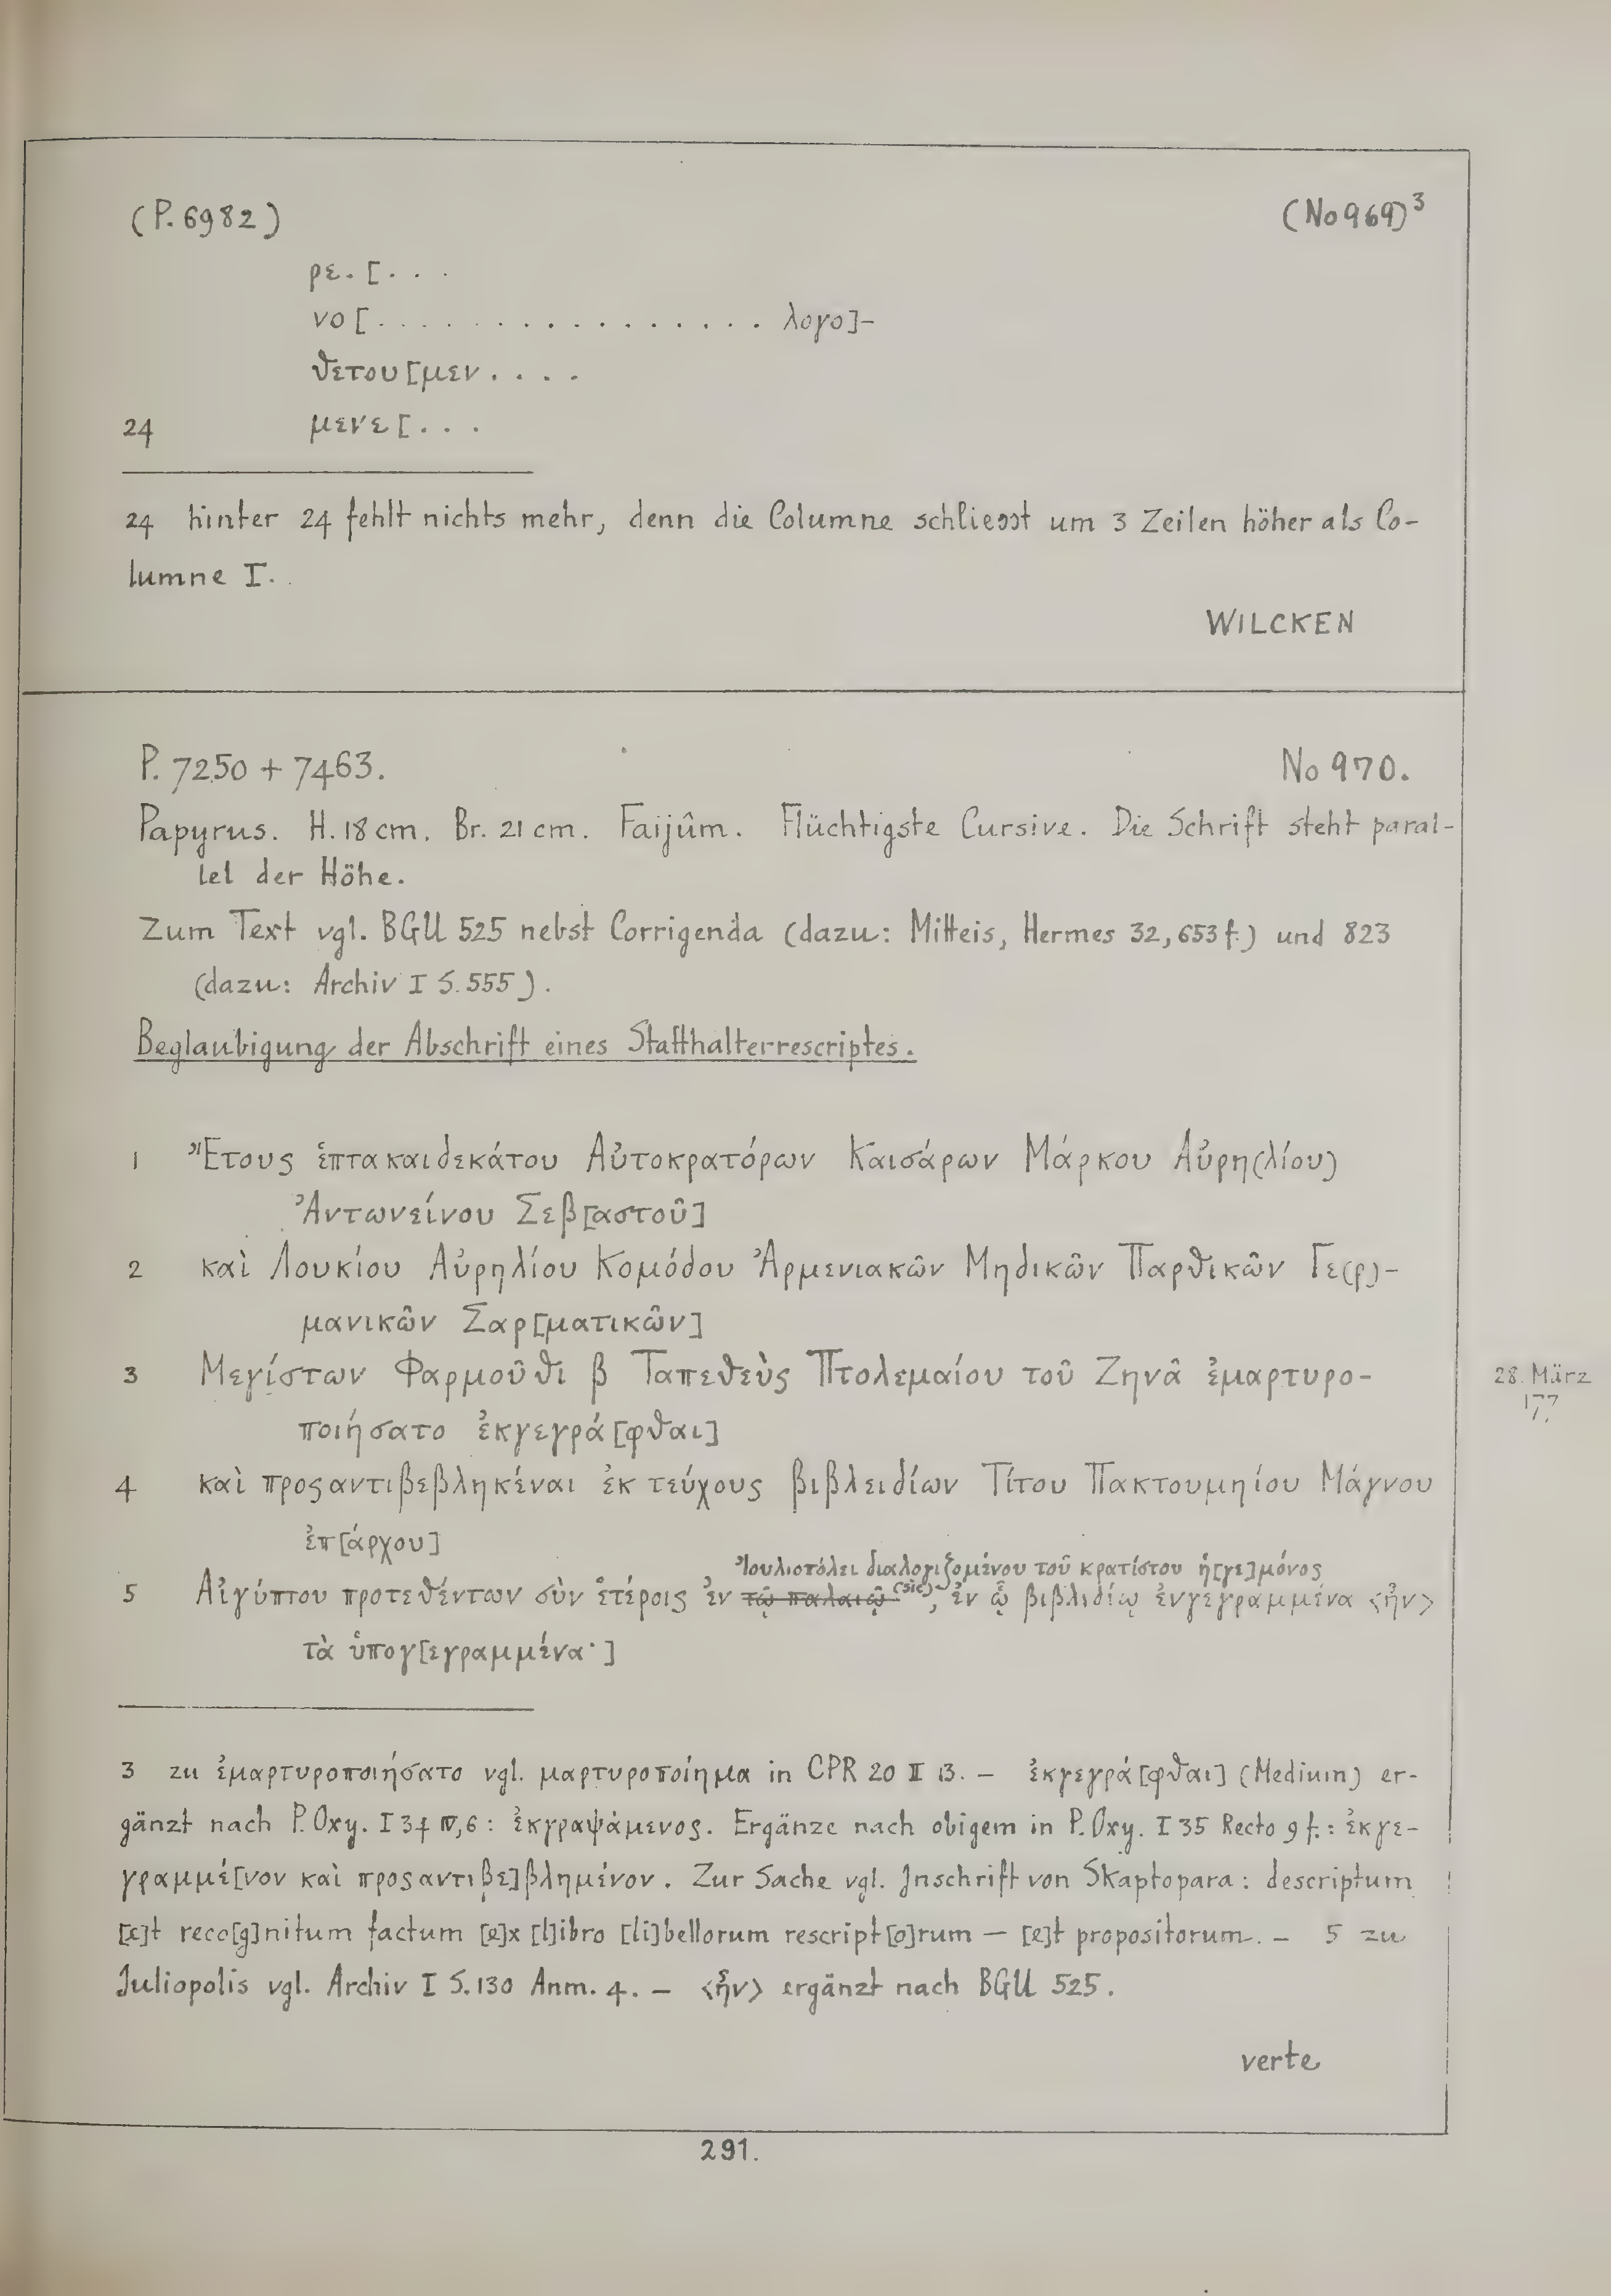 (P. 6982) (No 969)³
ρε. [. . .
νο [. . . . . . . . . . . . . . . . . λογο]-
θετου[μεν . . . .
24 μενε [. . .
24 hinter 24 fehlt nichts mehr, denn die Columne schliesst um 3 Zeilen höher als Co-
lumne I.
WILCKEN
P. 7250 + 7463. No 970.
Papyrus. H. 18 cm. Br. 21 cm. Faijûm. Flüchtigste Cursive. Die Schrift steht paral-
lel der Höhe.
Zum Text vgl. BGU 525 nebst Corrigenda (dazu: Mitteis, Hermes 32, 653 f.) und 823
(dazu: Archiv I S. 555).
Beglaubigung der Abschrift eines Statthalterrescriptes.
1 Ἔτους ἑπτακαιδεκάτου Αὐτοκρατόρων Καισάρων Μάρκου Αὐρη(λίου)
Ἀντωνείνου Σεβ[αστοῦ]
2 καὶ Λουκίου Αὐρηλίου Κομόδου Ἀρμενιακῶν Μηδικῶν Παρθικῶν Γε(ρ)-
μανικῶν Σαρ[ματικῶν]
3 Μεγίστων Φαρμοῦθι β Ταπεθεὺς Πτολεμαίου τοῦ Ζηνᾶ ἐμαρτυρο-
ποιήσατο ἐκγεγρά[φθαι]
28. März
177.
4 καὶ προςαντιβεβληκέναι ἐκ τεύχους βιβλειδίων Τίτου Πακτουμηίου Μάγνου
ἐπ[άρχου]
Ἰουλιοπόλει διαλογιζομένου τοῦ κρατίστου ἡ[γε]μόνος
5 Αἰγύπτου προτεθέντων σὺν ἑτέροις ἐν τῷ παλαιῷ (sic), ἐν ᾧ βιβλιδίῳ ἐνγεγραμμένα <ἦν>
τὰ ὑπογ[εγραμμένα·]
3 zu ἐμαρτυροποιήσατο vgl. μαρτυροποίημα in CPR 20 II 13. – ἐκγεγρά[φθαι] (Medium) er-
gänzt nach P. Oxy. I 34 IV, 6: ἐκγραψάμενος. Ergänze nach obigem in P. Oxy. I 35 Recto 9 f.: ἐκγε-
γραμμέ[νον καὶ προςαντιβε]βλημένον. Zur Sache vgl. Inschrift von Skaptopara: descriptum
[e]t reco[g]nitum factum [e]x [l]ibro [li]bellorum rescript[o]rum – [e]t propositorum. – 5 zu
Juliopolis vgl. Archiv I S. 130 Anm. 4. – <ἦν> ergänzt nach BGU 525.
verte
291.